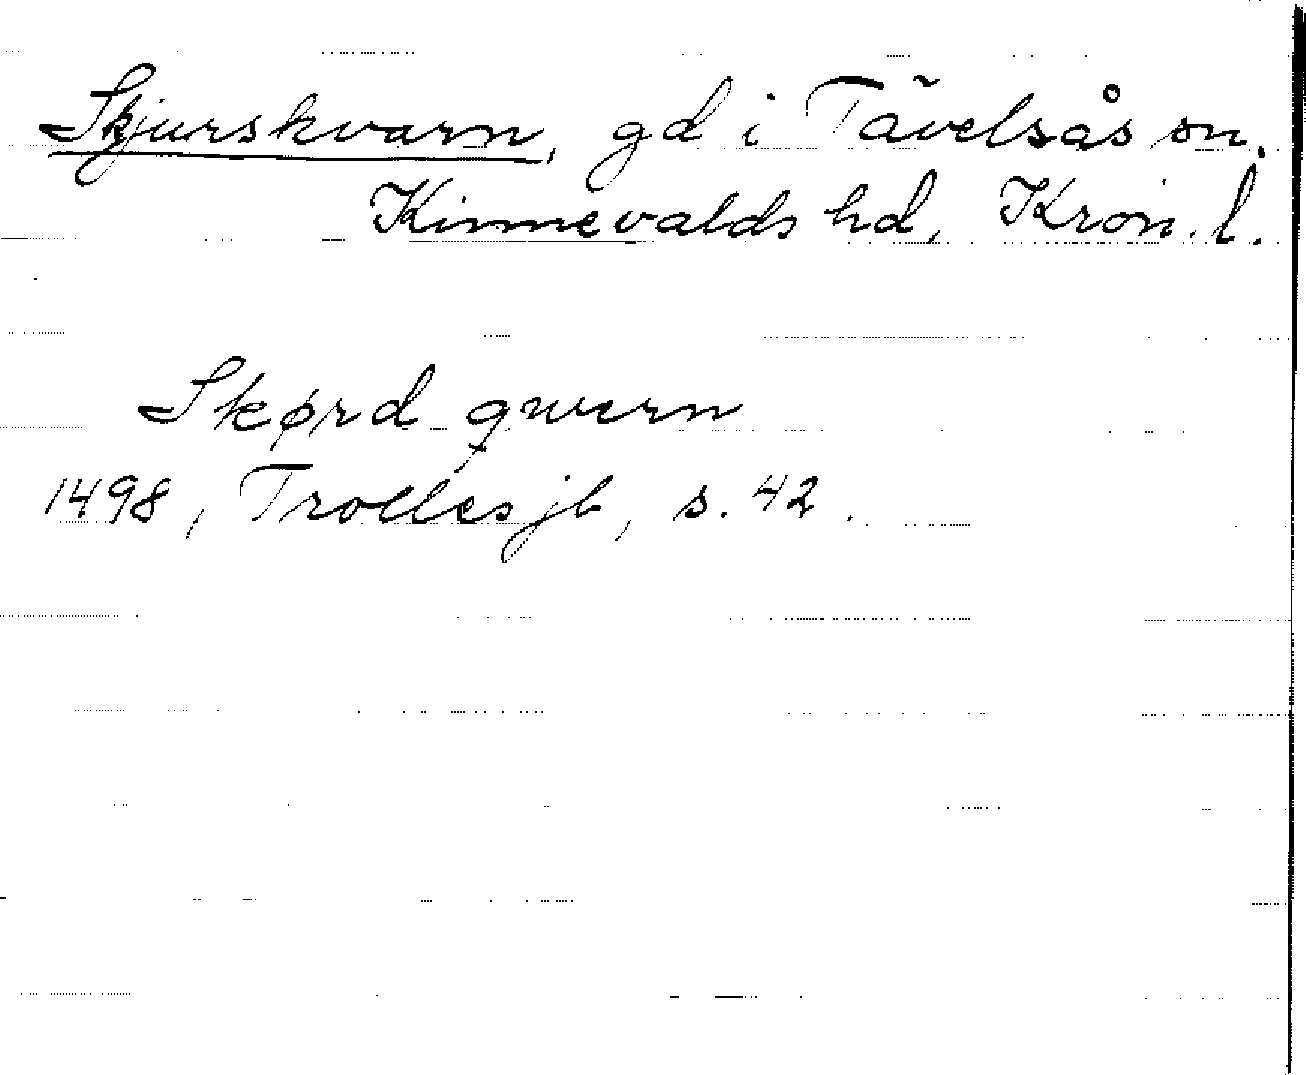 Skjurskvarn, gd i Tävelsås sn.
Kinnevalds hd, Kron. l.
Skørd qwern
1498, Trolles jb, s. 42.